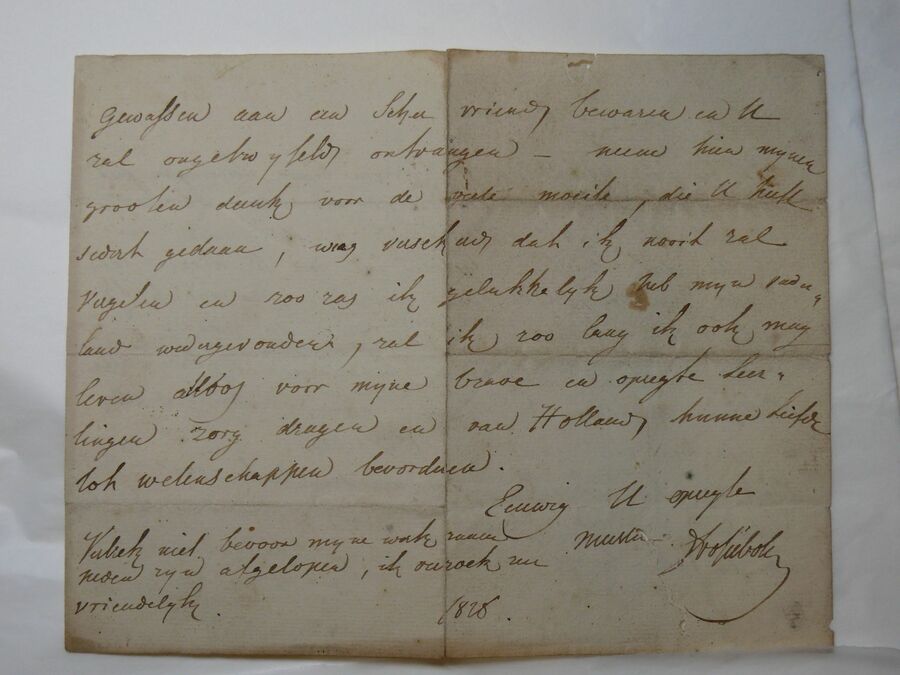 Gewassen aan een vriend bewaren en U
zal ongetwyfeld ontvangen – neem hier mynen
grooten dank voor de viele moeite, die U heeft
gedaan, dat ik nooit zal
vergeten en zoo ras ik gelukkelyk heb myn vader„
land wedergevonden, zal ik zoo lang ik ook mag
leven altoos voor myne brave en opregte Leer„
lingen zorg dragen en van Holland hunne Liefde
tot wetenschappen bevorderen.
Eeuwig U opregte
Meester DrvSiebold
Vertrek niet bevoor myne werkzaam
heden zyn afgelopen, ik
vriendelyk.
1828